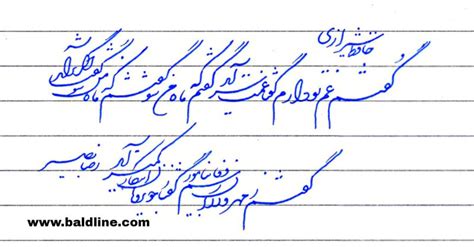 حافظ شیرازی
گفتم غم تو دارم گفتا غمت سر آید گفتم که ماه من شو گفتا اگر برآید
گفتم ز مهرورزان رسم وفا بیاموز گفتا ز خوبرویان این کار کمتر آید رضا
www.baldline.com